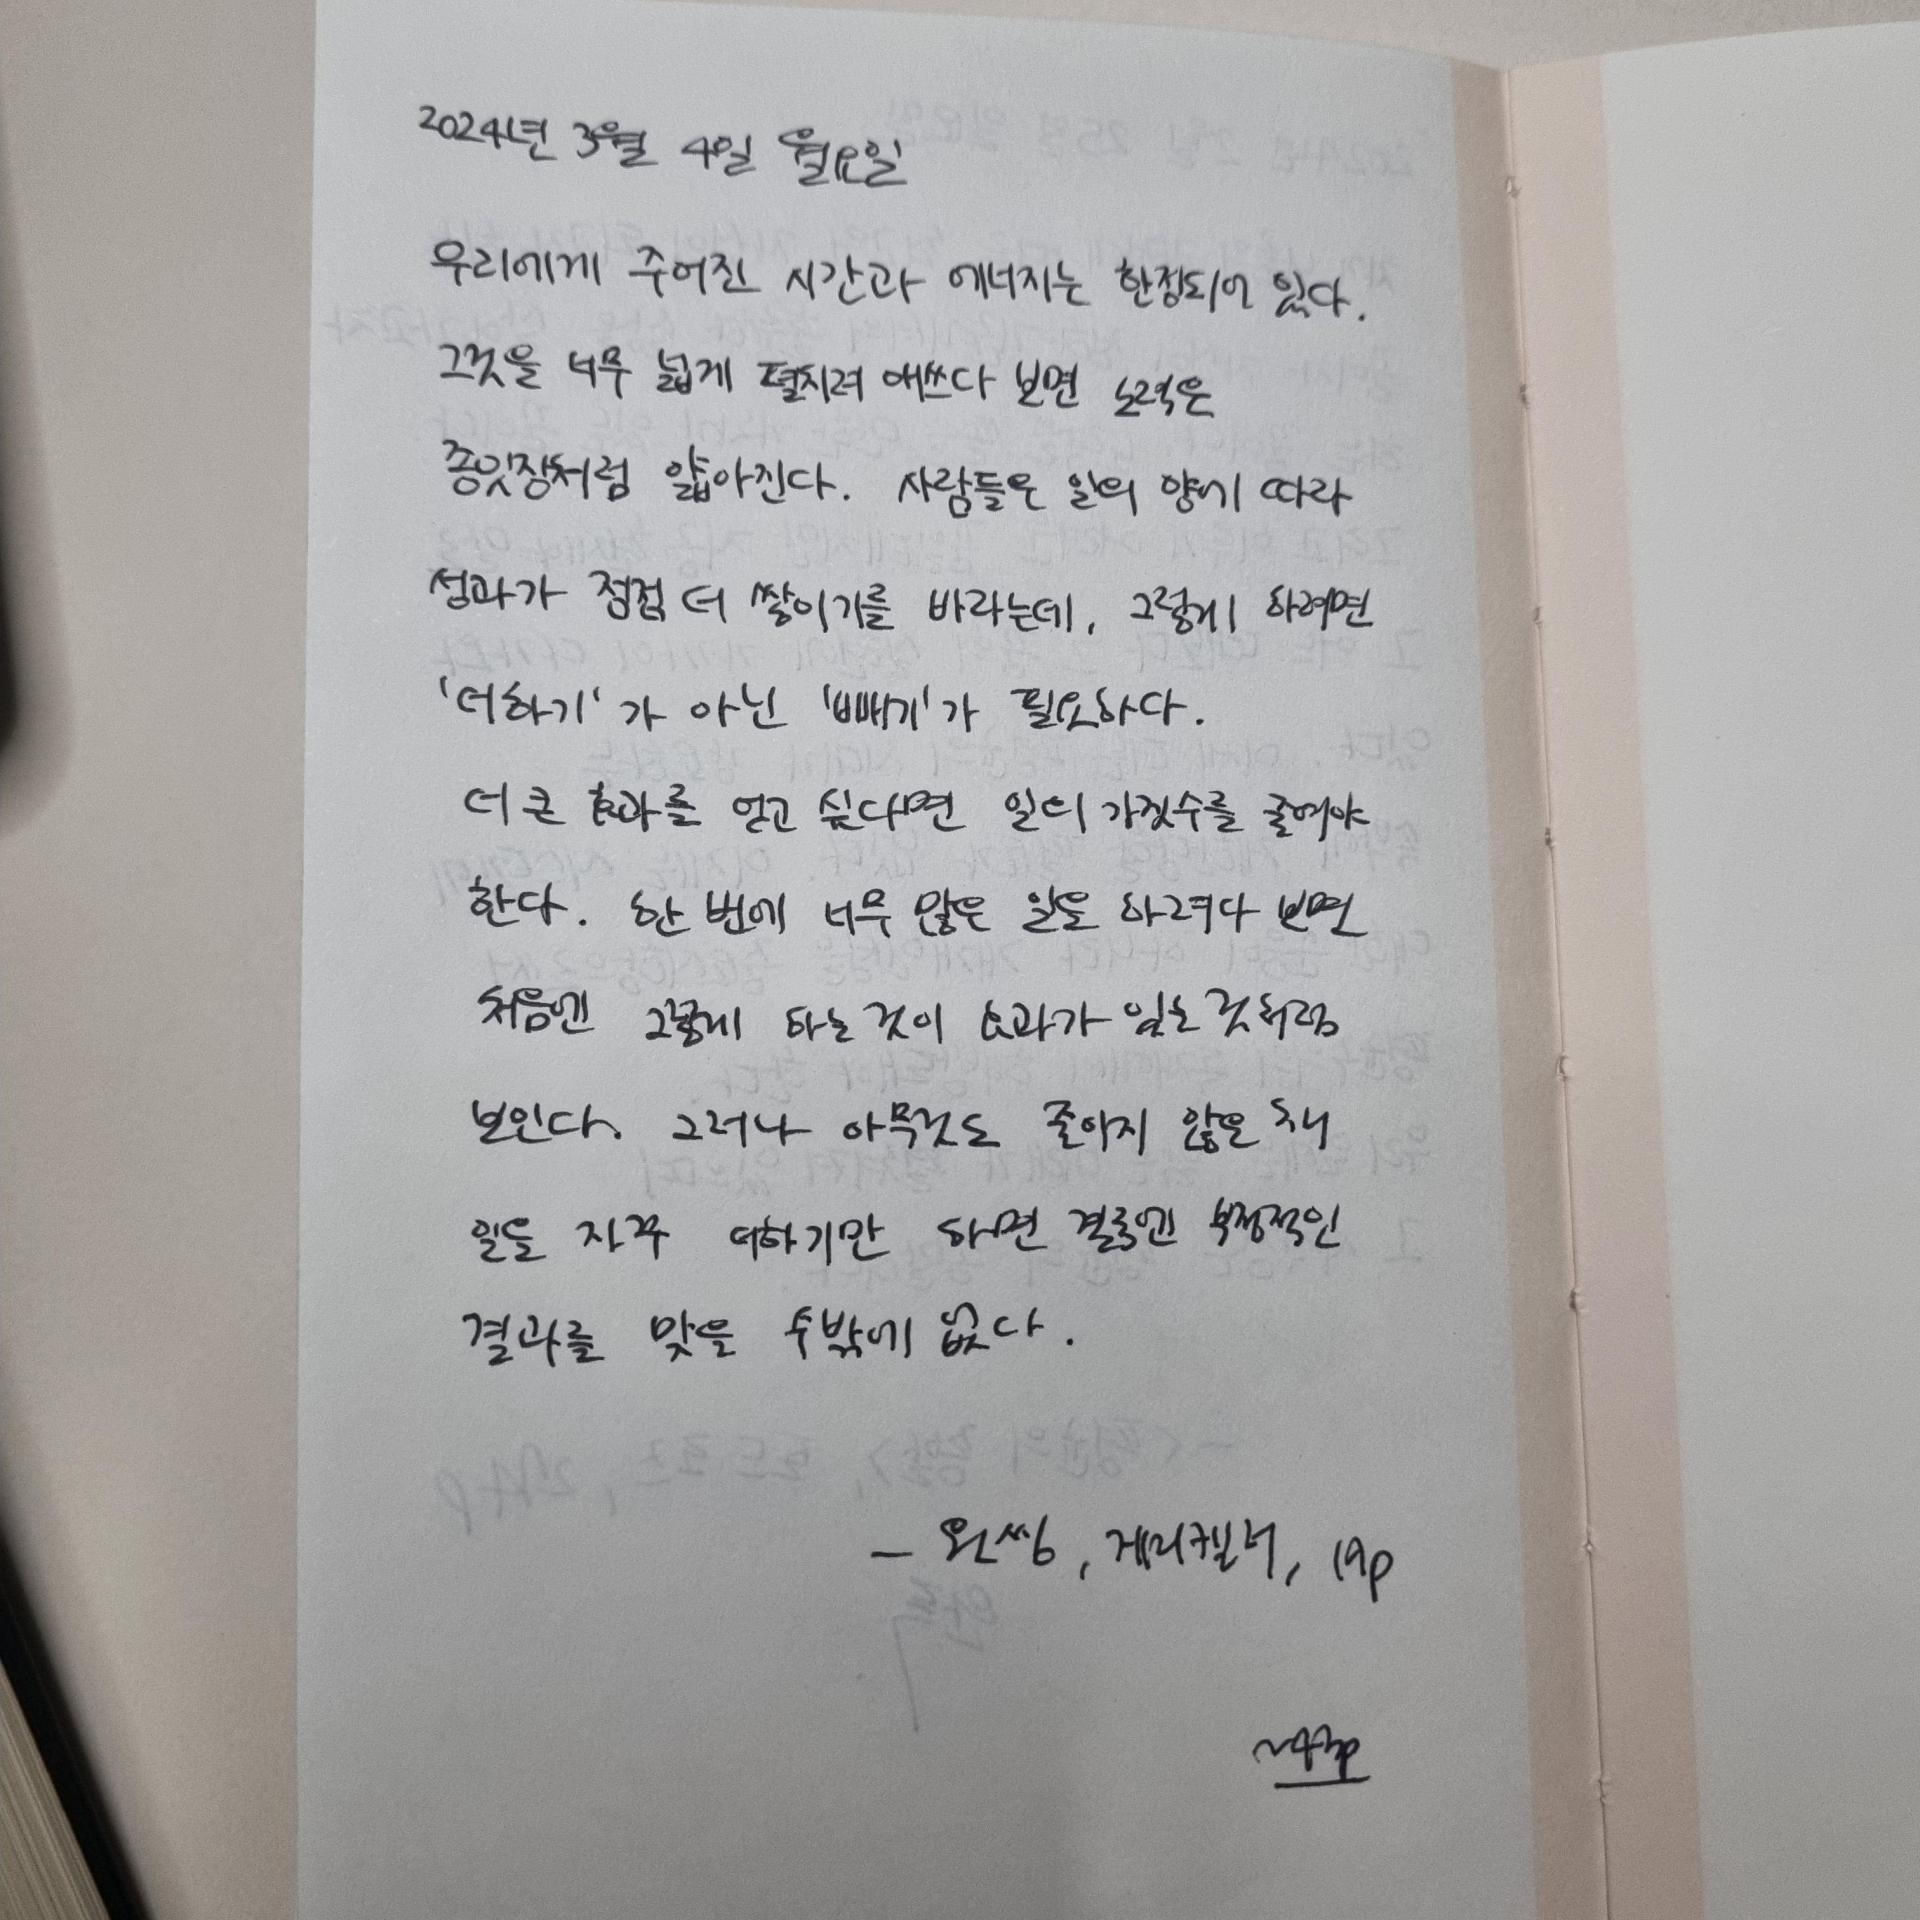 2024년 3월 4일 월요일
우리에게 주어진 시간과 에너지는 한정되어 있다.
그것을 너무 넓게 펼치려 애쓰다 보면 노력은
종잇장처럼 얇아진다. 사람들은 일의 양에 따라
성과가 점점 더 쌓이기를 바라는데, 그렇게 하려면
'더하기'가 아닌 '빼기'가 필요하다.
더 큰 효과를 얻고 싶다면 일의 가짓수를 줄여야
한다. 한 번에 너무 많은 일을 하려다 보면
처음엔 그렇게 하는 것이 효과가 있는 것처럼
보인다. 그러나 아무것도 줄이지 않은 채
일을 자꾸 더하기만 하면 결국엔 부정적인
결과를 맞을 수밖에 없다.
- 원씽, 게리켈러, 19p